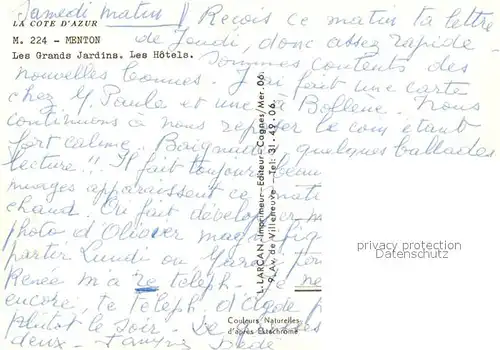 Samedi matin || Reçois ce matin ta lettre
LA COTE D'AZUR
de Jeudi, donc assez rapide -
M. 224 - MENTON
Les Grands Jardins. Les Hôtels.
Sommes contents des
nouvelles bonnes. J'ai fait une carte
chez Y Paule et une à Bollene. Nous
continuons à nous reposer le coin étant
fort calme. Baignade, quelques ballades
lecture!! Il fait toujours beau
nuages apparaissent ce matin
chaud. On fait développer
photo d'Olivier
partir Lundi ou Mardi
Renée m'a re téléph. Je ne
encore, te téléph. d'Agde
plutôt le soir.
deux - Dédé
L. LARCAN - Imprimeur - Editeur - Cagnes/Mer. 06.
9, Av. de Villeneuve - Tel: 31-49-06.
Couleurs Naturelles
d'après Ektachrome
privacy protection
Datenschutz